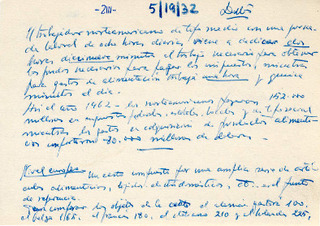 -2111- 5/19/32
El trabajador norteamericano de tipo medio con una jornada
laboral de ocho horas diarias, viene a dedicar dos
horas diecinueve minutos al trabajo necesario para obtener
los fondos necesarios para pagar los impuestos mientras
para gastos de alimentación trabaja una hora y
minutos al día.
En el año 1962 los norteamericanos pagaron 152.000
millones en impuestos federales, estatales, locales y de tipo social
mientras los gastos en adquisición de productos alimenti-
cios importaron 70.000 millones de dólares.
Nivel europeo Una cesta compuesta por una amplia serie de artí-
culos alimentarios, tejidos, domésticos, etc. el punto
de referencia.
para comprar los objetos de la cesta el alemán gastará 100,
el belga el francés 180, el 210 y el 225,